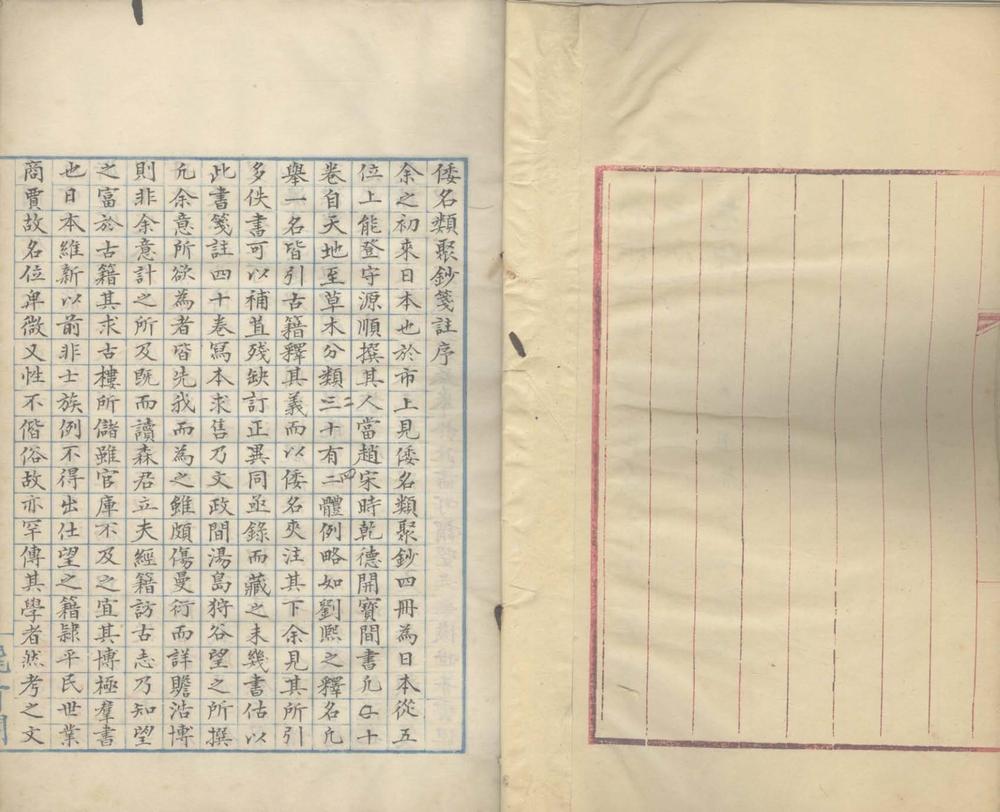 倭名類聚鈔箋註序
余之初來日本也於市上見倭名類聚鈔四冊為日本從五
位上能登守源順撰其人當趙宋時乾德開寶間書凡四十
卷自天地至草木分類三十有二體例略如劉熙之釋名凡
舉一名皆引古籍釋其義而以倭名夾注其下余見其所引
多佚書可以補苴殘缺訂正異同亟錄而藏之未幾書估以
此書箋註四十卷寫本求售乃文政間湯島狩谷望之所撰
凡余意所欲為者皆先我而為之雖頗傷曼衍而詳贍浩博
則非余意計之所及既而讀森君立夫經籍訪古志乃知望
之富於古籍其求古樓所儲雖官庫不及之宜其博極羣書
也日本維新以前非士族例不得出仕望之籍隸平民世業
商賈故名位卑微又性不偕俗故亦罕傳其學者然考之文